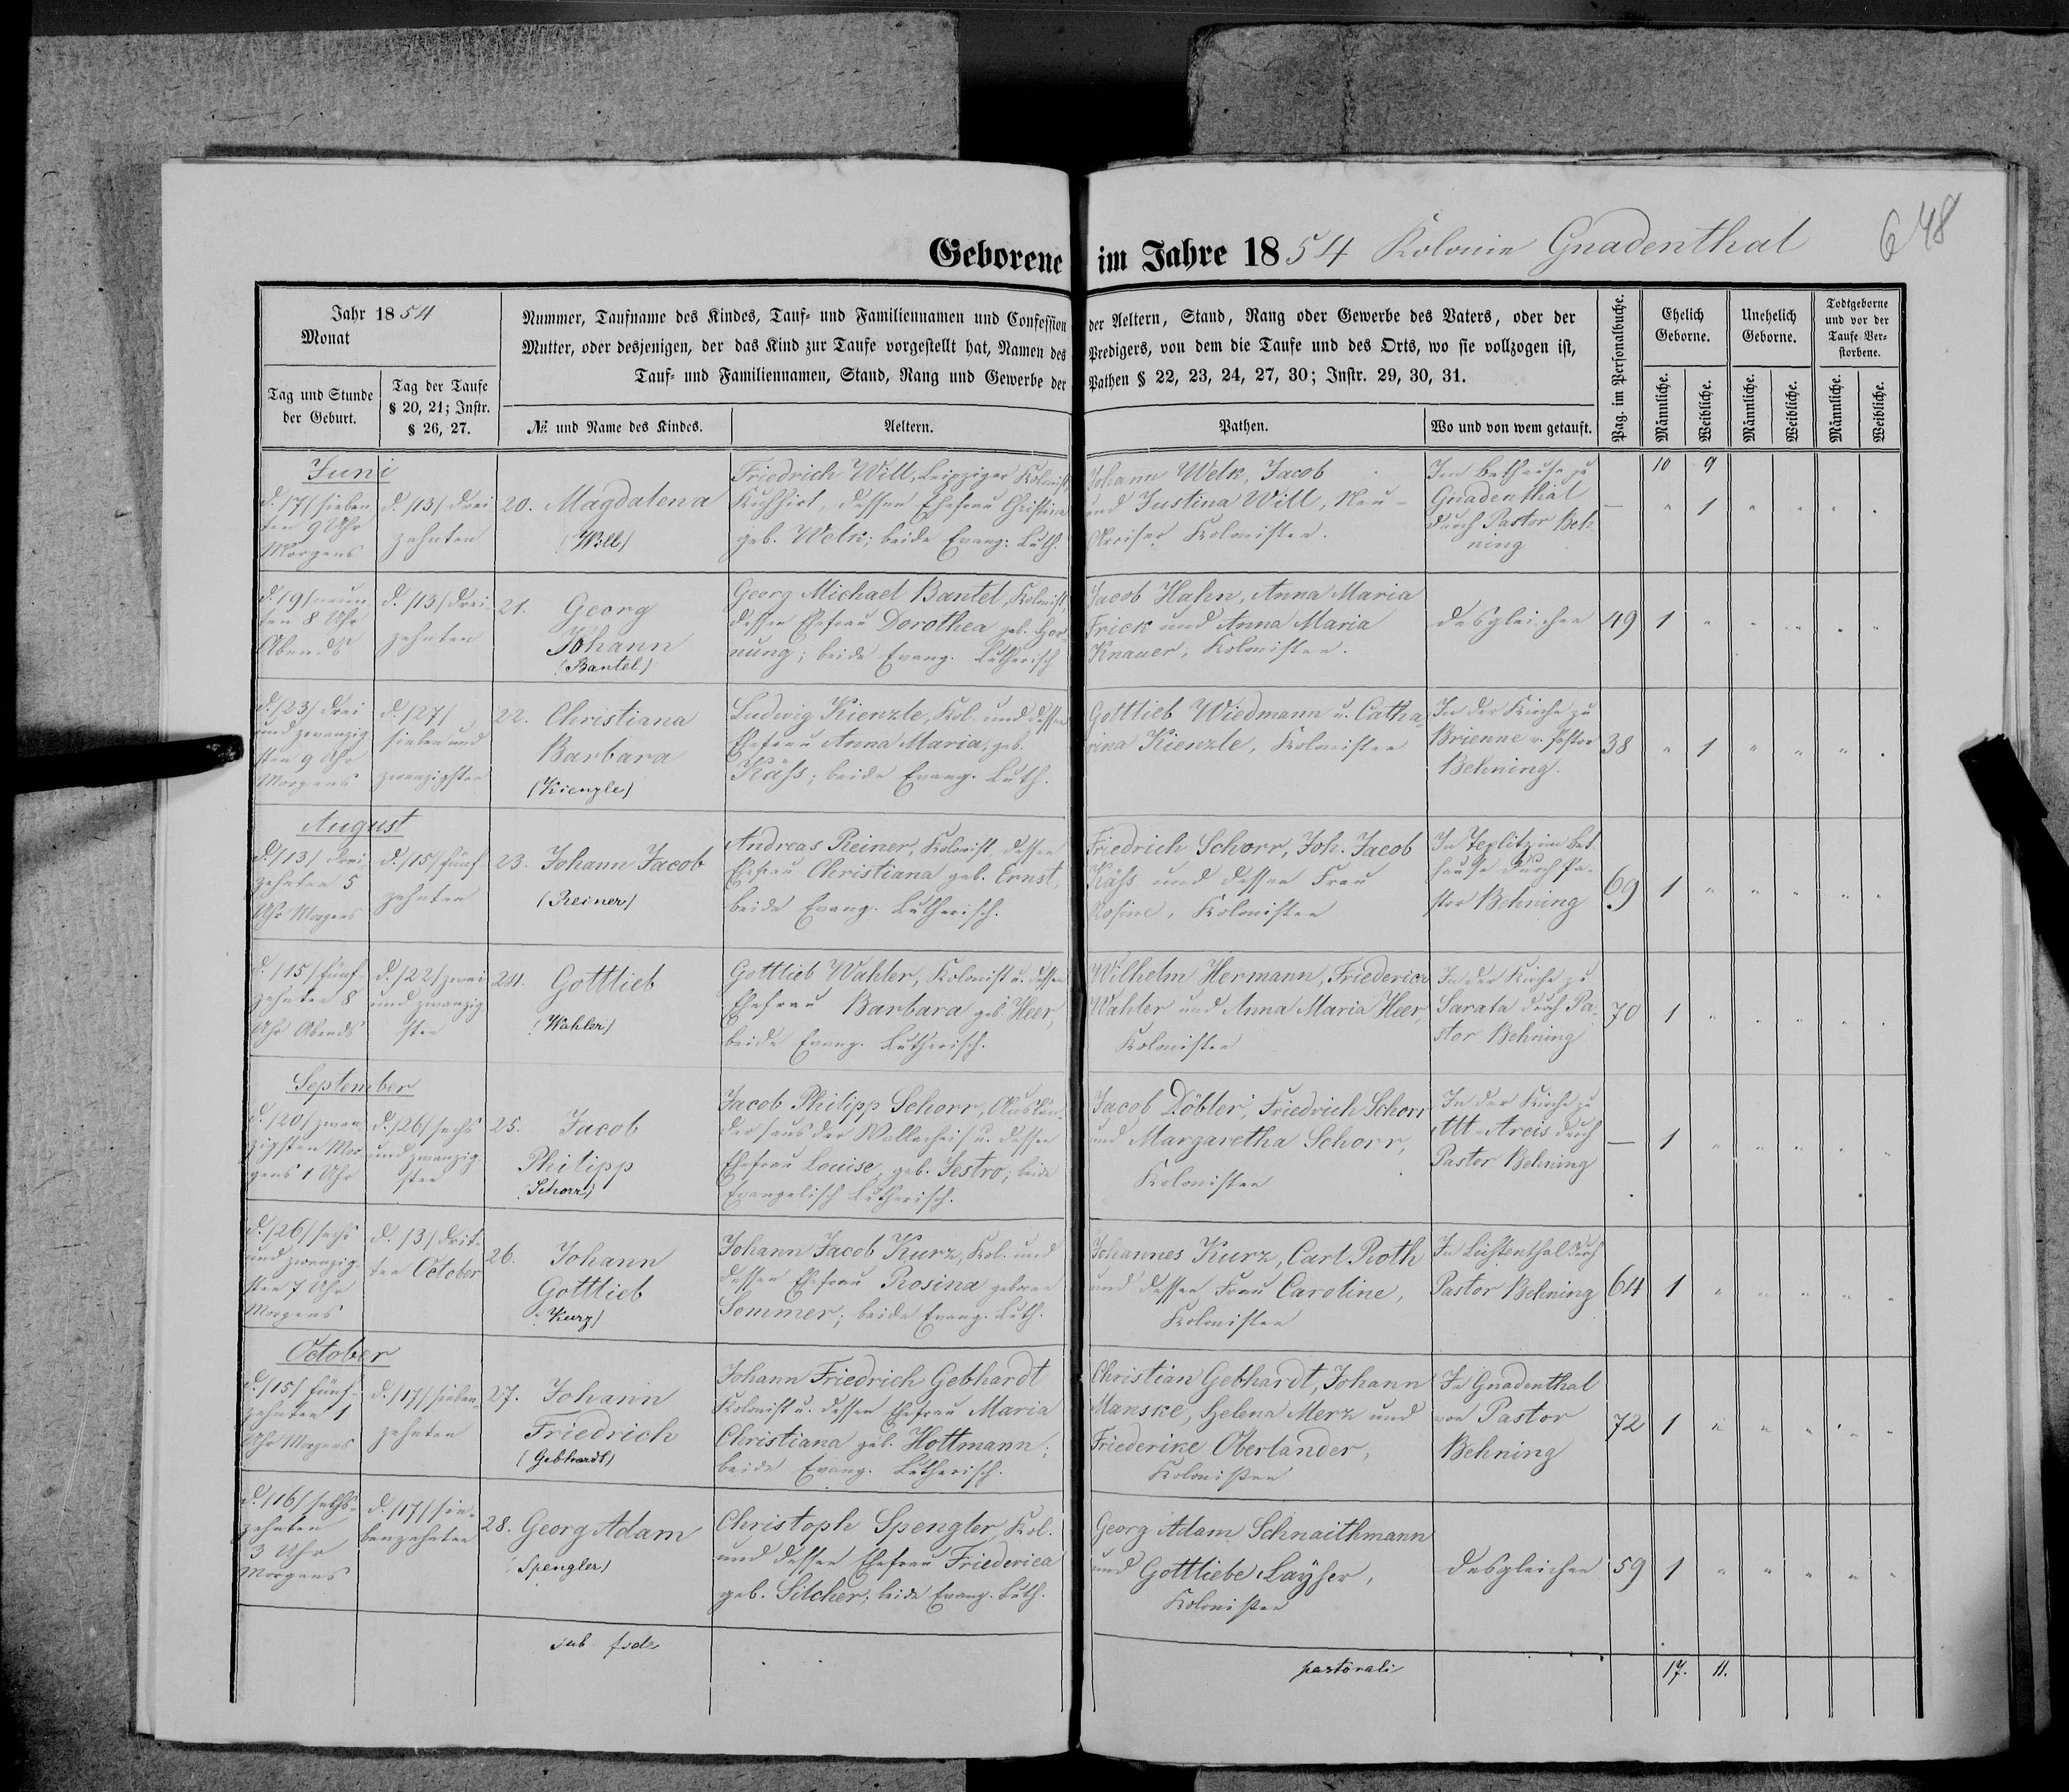 648
Geborene im Jahre 1854 Kolonie Gnadenthal
Jahr 1854
Monat
Tag und Stunde
der Geburt.
Tag der Taufe
§ 20, 21; Instr.
§ 26, 27.
Nummer, Taufname des Kindes, Tauf- und Familiennamen und Confession
Mutter, oder desjenigen, der das Kind zur Taufe vorgestellt hat, Namen des
Tauf- und Familiennamen, Stand, Rang und Gewerbe der
№ und Name des Kindes.
Aeltern.
der Aeltern, Stand, Rang oder Gewerbe des Vaters, oder der
Predigers, von dem die Taufe und des Orts, wo sie vollzogen ist,
Pathen § 22, 23, 24, 27, 30; Instr. 29, 30, 31.
Pathen.
Wo und von wem getauft.
Pag. im Personalbuche.
Ehelich
Geborne.
Unehelich
Geborne.
Todtgeborne
und vor der
Taufe Ver-
storbene.
Männliche.
Weibliche.
Männliche.
Weibliche.
Männliche.
Weibliche.
10 9
Juni
d. /7/ sieben
ten 9 Uhr
Morgens
d. /13/ drei
zehnten
20. Magdalena
(Will)
Friedrich Will, Leipziger Kolonist,
Kuhhirt, dessen Ehefrau Christina
geb. Welk; beide Evang. Luth.
Johann Welk, Jacob
und Justina Will, Neu-
Arciser Kolonisten.
Im Bethause zu
Gnadenthal
durch Pastor Beh-
ning
— " 1 " " " "
d. /9/ neun
ten 8 Uhr
Abends
d. /13/ drei
zehnten
21. Georg
Johann
(Bantel)
Georg Michael Bantel, Kolonist,
dessen Ehefrau Dorothea geb. Hor-
nung; beide Evang. Lutherisch
Jacob Hahn, Anna Maria
Frick und Anna Maria
Knauer, Kolonisten.
desgleichen
49 1 " " " " "
d. /23/ drei
und zwanzig
sten 9 Uhr
Morgens
d. /27/
sieben und
zwanzigsten
22. Christiana
Barbara
(Kienzle)
Ludwig Kienzle, Kol. und dessen
Ehefrau Anna Maria, geb.
Käfs; beide Evang. Luth.
Gottlieb Wiedmann u. Catha-
rina Kienzle, Kolonisten
In der Kirche zu
Brienne v. Pastor
Behning.
38 " 1 " " " "
August
d. /13/ drei
zehnten 5
Uhr Morgens
d. /15/ fünf
zehnten
23. Johann Jacob
(Reiner)
Andreas Reiner, Kolonist, dessen
Ehefrau Christiana geb. Ernst,
beide Evang. Lutherisch.
Friedrich Schorr, Joh. Jacob
Käfs und dessen Frau
Rosine, Kolonisten
In Teplitz im Bet
hause durch Pa-
stor Behning
69 1 " " " " "
d. /15/ fünf-
zehnten 8
Uhr Abends
d. /22/ zwei
und zwanzig
sten
24. Gottlieb
(Wahler)
Gottlieb Wahler, Kolonist u. dessen
Ehefrau Barbara geb. Heer,
beide Evang. Lutherisch.
Wilhelm Hermann, Friederica
Wahler und Anna Maria Heer,
Kolonisten
In der Kirche zu
Sarata durch Pa-
stor Behning
70 1 " " " " "
September
d. /20/ zwan
zigsten Mor-
gens 1 Uhr
d. /26/ sechs
und zwanzig
sten
25. Jacob
Philipp
(Schorr)
Jacob Philipp Schorr, Auslän-
der /aus der Wallachei/ u. dessen
Ehefrau Louise, geb. Jestro; beide
Evangelisch Lutherisch.
Jacob Döbler, Friedrich Schorr
und Margaretha Schorr,
Kolonisten
In der Kirche zu
Alt-Arcis durch
Pastor Behning
— 1 " " " " "
d. /26/ sechs
und zwanzig-
sten 7 Uhr
Morgens
d. /3/ drit-
ten October
26. Johann
Gottlieb
(Kurz)
Johann Jacob Kurz, Kol. und
dessen Ehefrau Rosina geborne
Sommer; beide Evang. Luth.
Johannes Kurz, Carl Roth
und dessen Frau Caroline,
Kolonisten
In Lichtenthal durch
Pastor Behning
64 1 " " " " "
October
d. /15/ fünf-
zehnten 1
Uhr Morgens
d. /17/ sieben
zehnten
27. Johann
Friedrich
(Gebhardt)
Johann Friedrich Gebhardt
Kolonist u. dessen Ehefrau Maria
Christiana geb. Hottmann;
beide Evang. Lutherisch.
Christian Gebhardt, Johann
Manske, Helena Merz und
Friederike Oberlander,
Kolonisten
In Gnadenthal
von Pastor
Behning
72 1 " " " " "
d. /16/ sechs-
zehnten
3 Uhr
Morgens
d. /17/ sie-
benzehnten
28. Georg Adam
(Spengler)
Christoph Spengler, Kol.
und dessen Ehefrau Friederica
geb. Silcher; beide Evang. Luth.
Georg Adam Schnaithmann
und Gottliebe Layher,
Kolonisten
desgleichen
59 1 " " " " "
sub fide pastorali
17. 11.